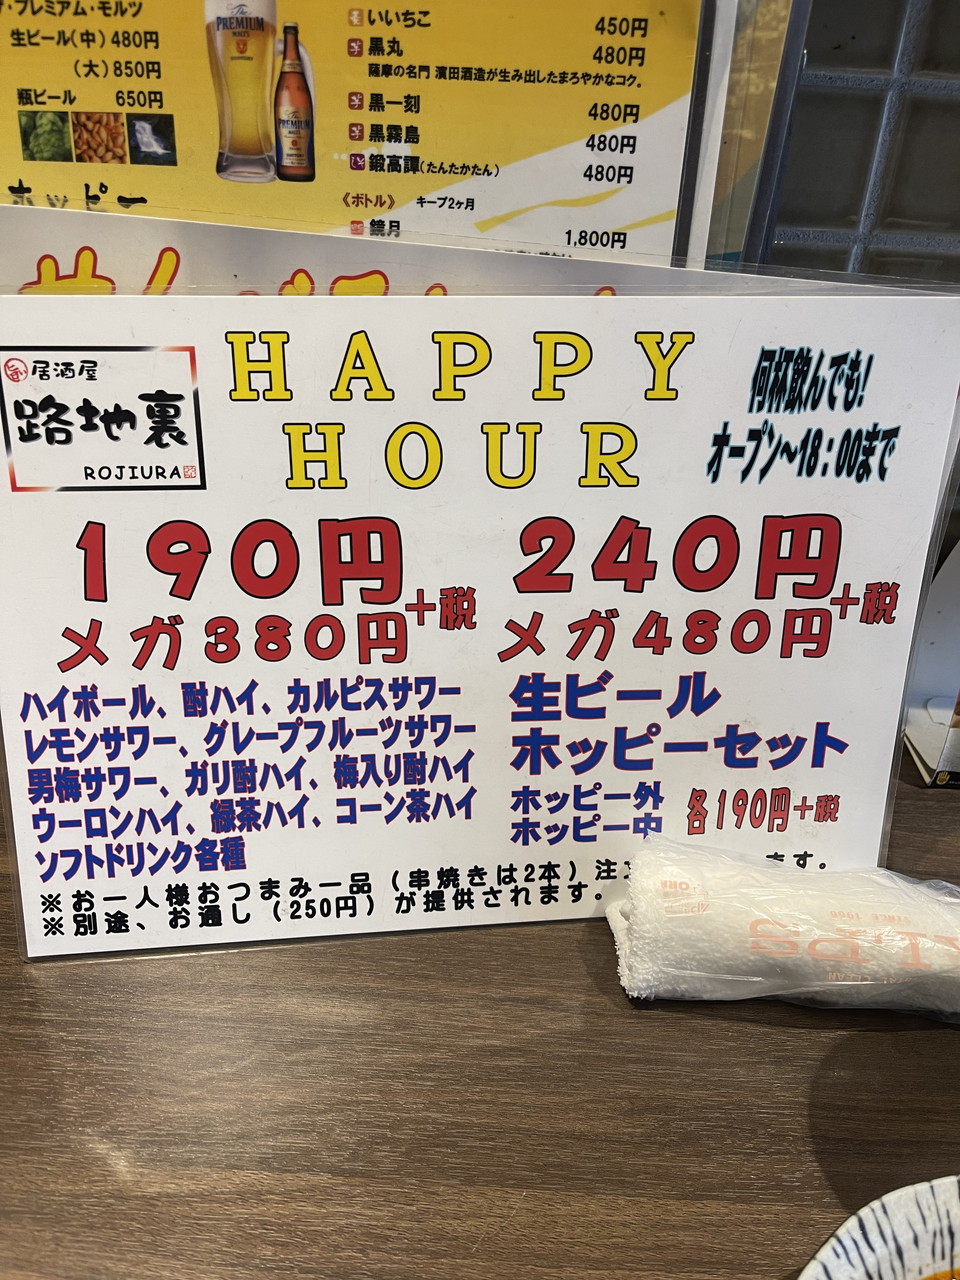 ・プレミアム・モルツ
生ビール(中) 480円
(大) 850円
瓶ビール 650円
The
PREMIUM
MALT'S
The
PREMIUM
いいちこ 450円
芋 黒丸 480円
薩摩の名門 濵田酒造が生み出したまろやかなコク。
芋 黒一刻 480円
芋 黒霧島 480円
しそ 鍛高譚(たんたかたん) 480円
《ボトル》 キープ2ヶ月
鏡月 1,800円
ホッピー
旨い 居酒屋
路地裏
ROJIURA
HAPPY
HOUR
何杯飲んでも!
オープン〜18:00まで
190円
+税
メガ380円
ハイボール、酎ハイ、カルピスサワー
レモンサワー、グレープフルーツサワー
男梅サワー、ガリ酎ハイ、梅入り酎ハイ
ウーロンハイ、緑茶ハイ、コーン茶ハイ
ソフトドリンク各種
240円
+税
メガ480円
生ビール
ホッピーセット
ホッピー外
ホッピー中
各190円+税
※お一人様おつまみ一品(串焼きは2本)注
ます。
※別途、お通し(250円)が提供されます。
SINCE 1966